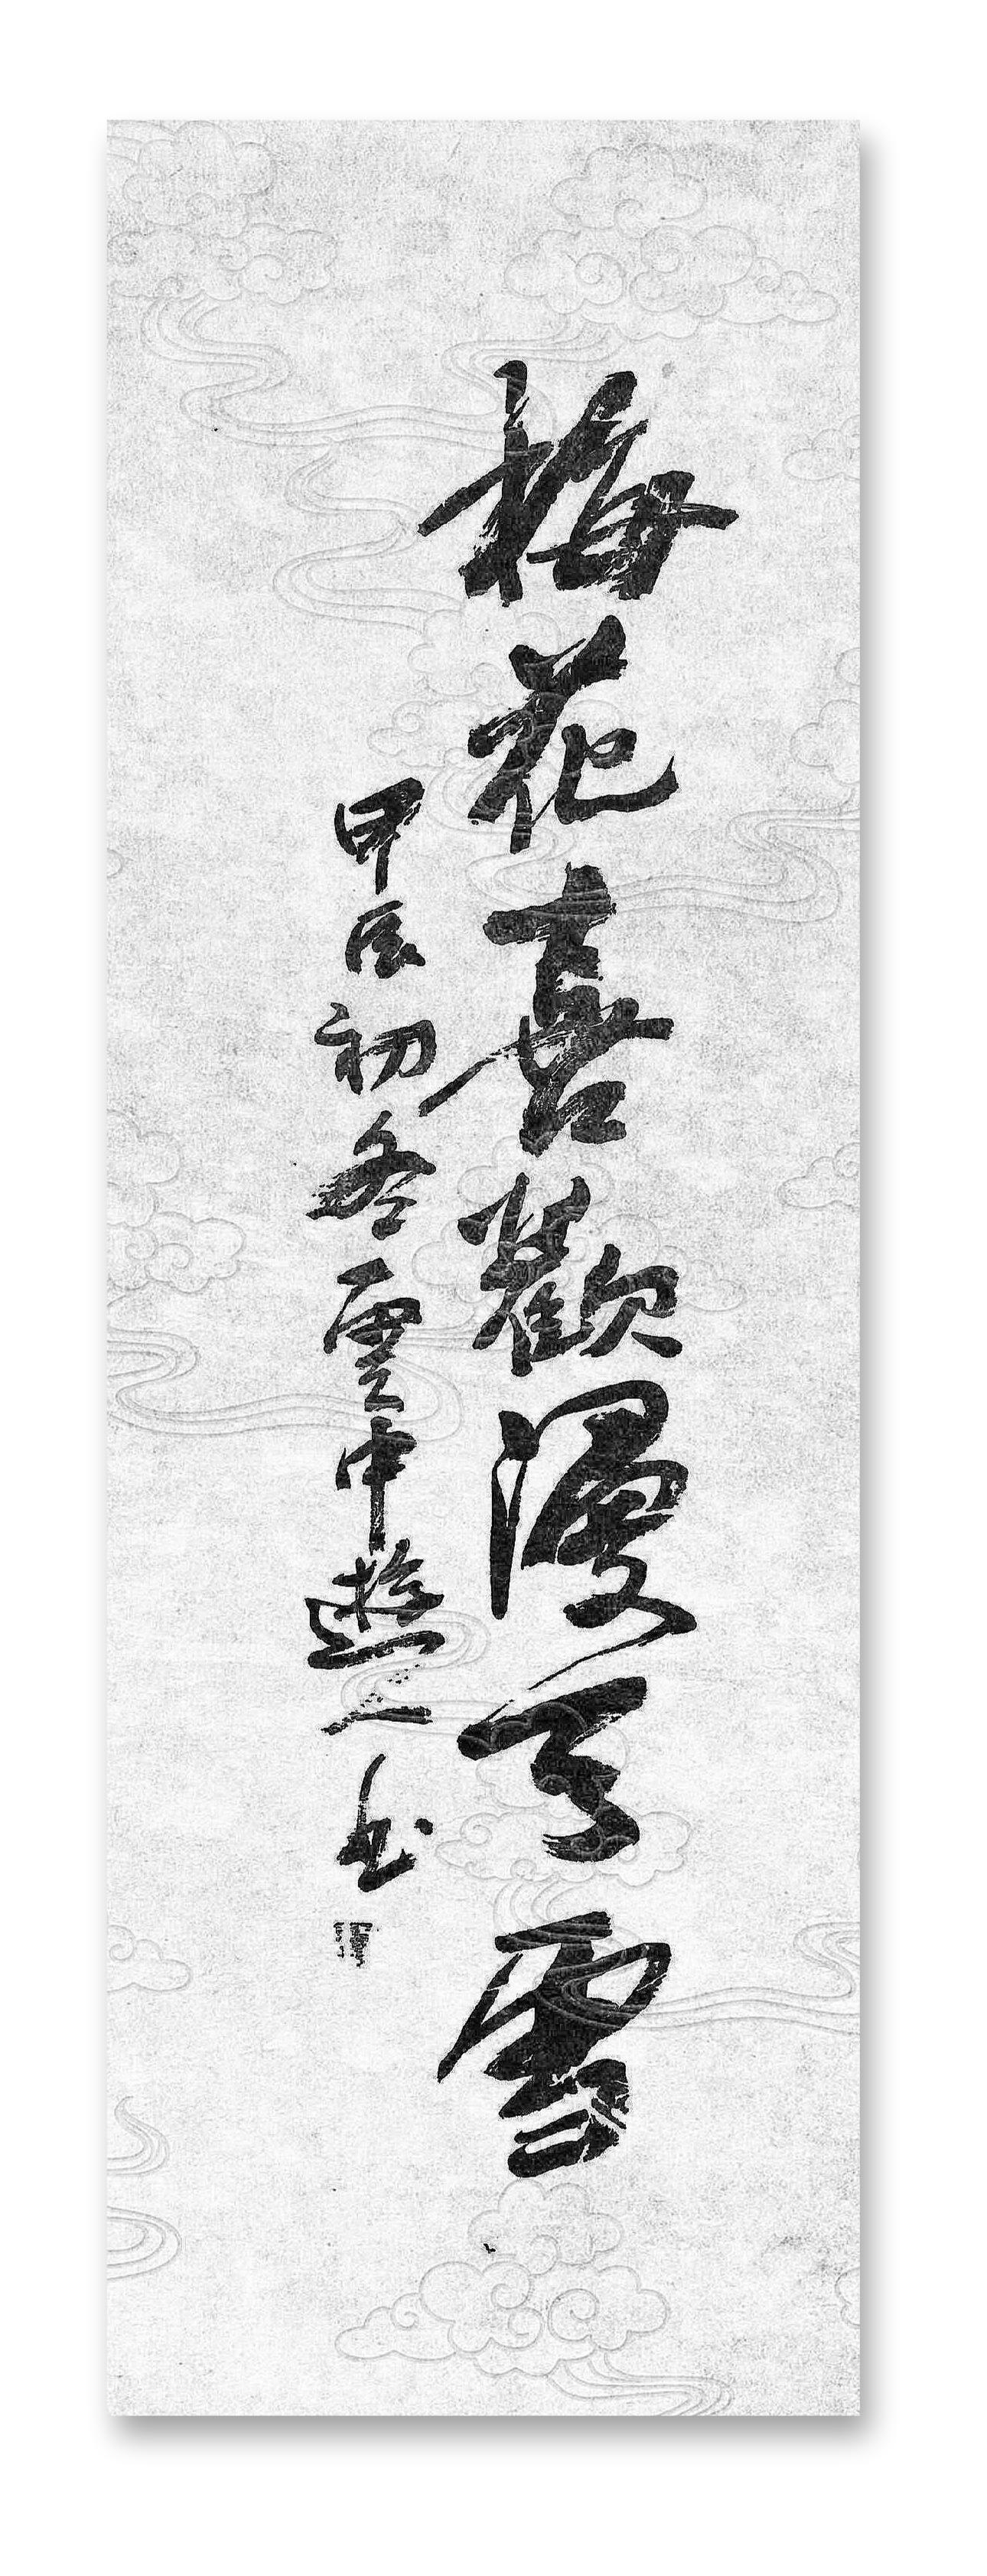 梅花喜歡漫天雪
甲辰初冬雲中遊人書